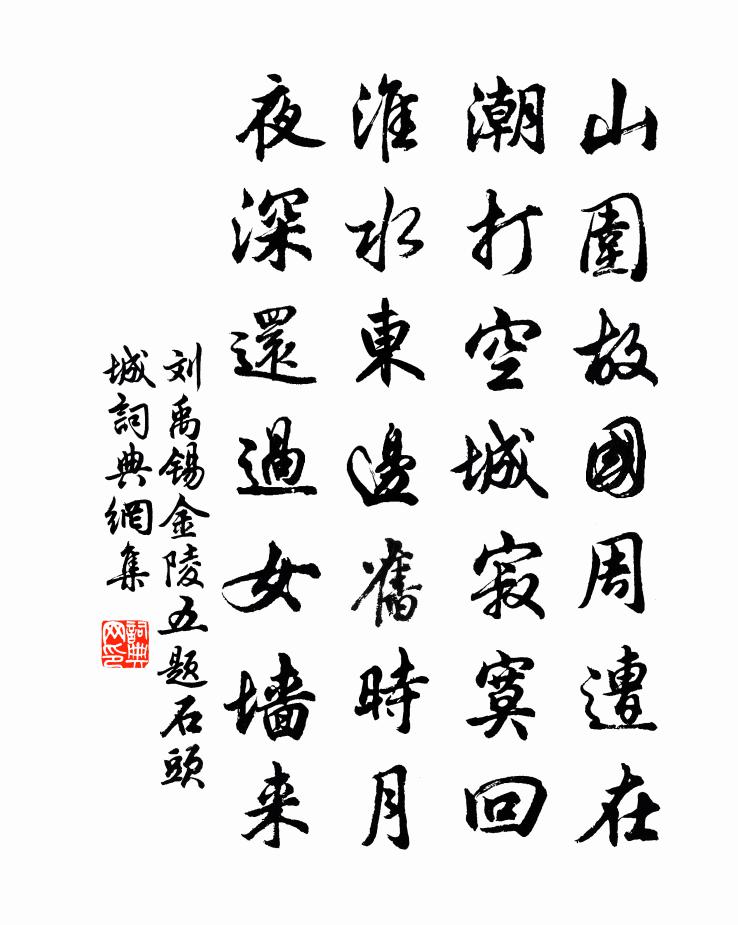 山圍故國周遭在
潮打空城寂寞回
淮水東邊舊時月
夜深還過女墻来
刘禹锡金陵五题石頭
城詞典網集
詞典
网印